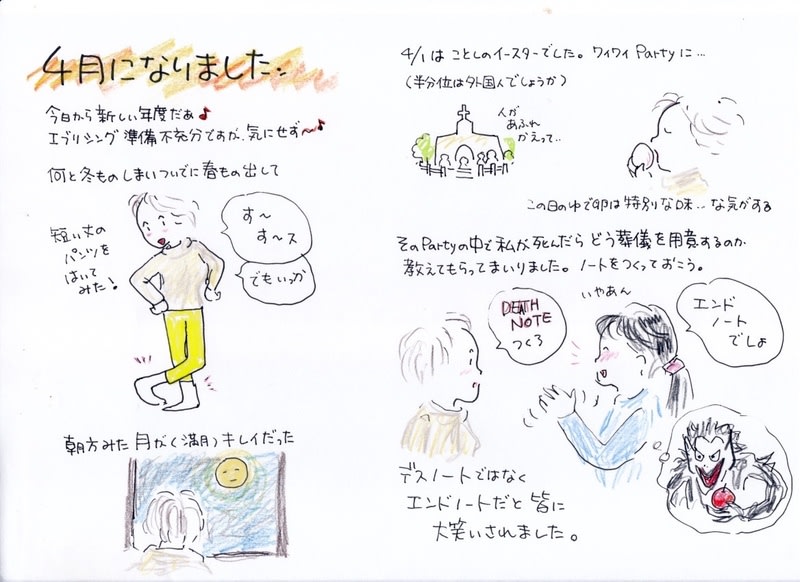 4月になりました..
今日から新しい年度だぁ♪
エブリシング準備不充分ですが、気にせず〜♪
何と冬ものしまいついでに春もの出して
短い丈の
パンツを
はいて
みた!
す〜
す〜ス
でもいっか
朝方みた月が(満月)キレイだった
4/1は ことしのイースターでした。ワイワイ Partyに…
(半分位は外国人でしょうか)
人が
あふれ
かえって..
この日の中で卵は特別な味… な気がする
そのPartyの中で私が死んだら どう葬儀を用意するのか
教えてもらってまいりました。ノートをつくっておこう。
いやあん
DEATH
NOTE
つくろ
エンド
ノート
でしょ
デスノートではなく
エンドノートだと皆に
大笑いされました。